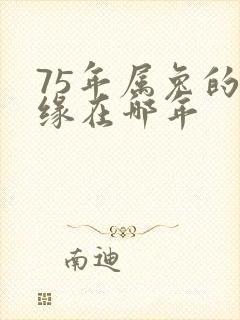 75年属兔的
缘在哪年
南迪